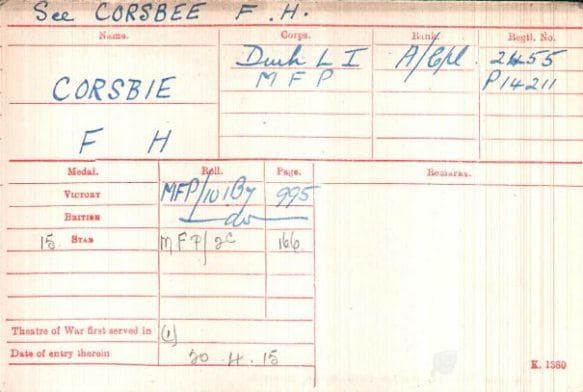 See CORSBEE F. H.
Name. Corps. Rank. Regtl. No.
CORSBIE Durh L I A/Cpl. 2455
M F P P14211
F H
Medal. Roll. Page. Remarks.
VICTORY MFP/101By 995
BRITISH do
15 STAR MFP/2C 166
Theatre of War first served in (1)
Date of entry therein 20.4.15
K. 1380